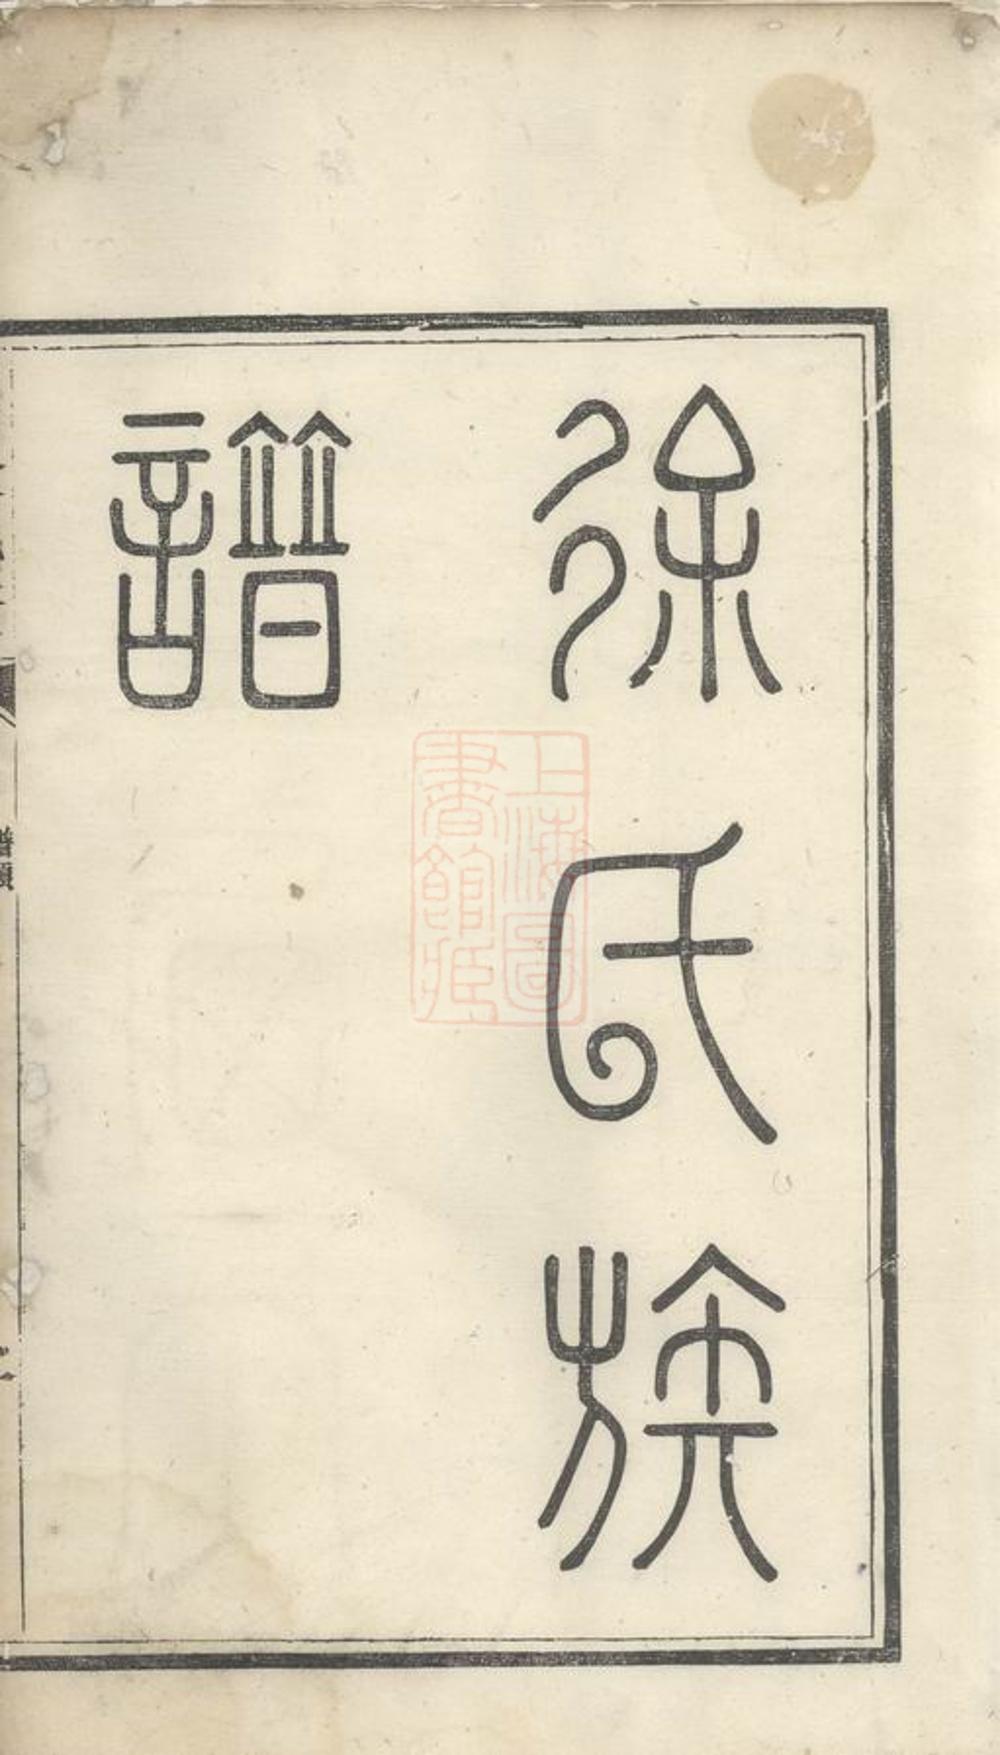 徐氏族
譜
上海圖
書館藏
譜頭